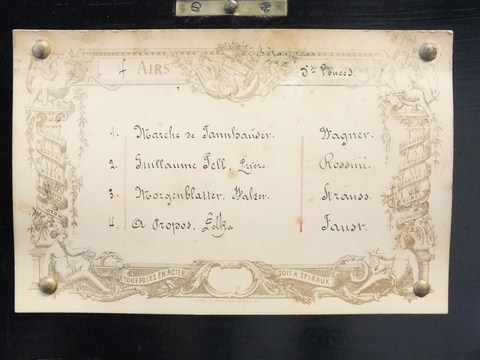 4 AIRS
3½ Pouces.
1. Marche de Tannhäuser. Wagner.
2. Guillaume Tell, Prière. Rossini.
3. Morgenblätter, Walzer. Strauss.
4. A Propos, Polka Faust.
ETOUFFOIRS EN ACIER SOIT A SPIRAUX